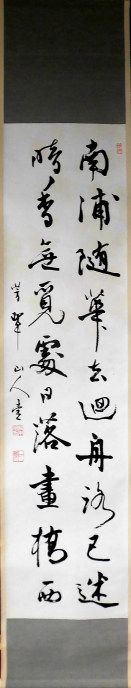 南浦随華去迴舟路已迷
暗香無覓處日落畫橋西
山人書